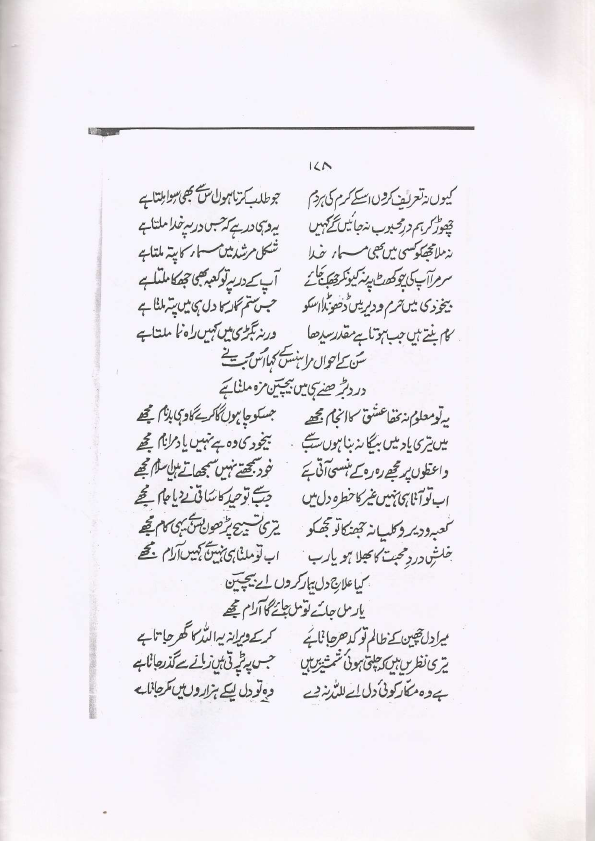 ۱۷۸
کیوں نہ تعریف کروں اسکے کرم کی ہر دم جو طلب کرتا ہوں اس سے بھی سوا ملتا ہے
چھوڑ کر ہم درِ محبوب نہ جائیں گے کہیں یہ وہی در ہے کہ جس در پہ خدا ملتا ہے
نہ ملا مجھکو کسی میں بھی مرا خدا شکل مرشد میں مرا پتہ ملتا ہے
سر مرا آپ کی چوکھٹ پہ نہ کیونکر جھک جائے آپ کے در پہ تو کعبہ بھی جھکا ملتا ہے
بیخودی میں حرم و دیر میں ڈھونڈا اسکو جس ستم گار کا دل ہی میں پتہ ملتا ہے
کام بنتے ہیں جب ہوتا ہے مقدر سیدھا ورنہ بگڑی میں کہیں راہ نما ملتا ہے
سن کے احوال مرا ہنس کے کہا اس بت نے
درد بڑھنے ہی میں بیچین مزہ ملتا ہے
یہ تو معلوم نہ تھا عشق کا انجام مجھے جسکو چاہوں گا کرے گا وہی بدنام مجھے
میں تری یاد میں بیگانہ بنا ہوں سب سے بیخودی وہ ہے نہیں یاد مرا نام مجھے
واعظوں پر مجھے رہ رہ کے ہنسی آتی ہے خود سمجھتے نہیں سمجھاتے ہیں اسلام مجھے
اب تو آتا ہی نہیں غیر کا خطرہ دل میں جب سے توحید کا ساقی نے دیا جام مجھے
کعبہ و دیر و کلیسا نہ جھنکا تو مجھکو تیری تسبیح پڑھوں بس ہے یہی کام مجھے
خلش درد محبت کا بھلا ہو یارب اب تو ملتا ہی نہیں ہے کہیں آرام مجھے
کیا علاج دل بیمار کروں اے بیچین
یار مل جائے تو مل جائے گا آرام مجھے
میرا دل چھین کے ظالم تو کدھر جاتا ہے کر کے ویرانہ یہ اللہ کا گھر جاتا ہے
تیری نظریں ہیں کہ چلتی ہوئی شمشیریں ہیں جس پہ پڑتی ہیں زمانے سے گذر جاتا ہے
ہے وہ مکار کوئی دل اسے للہ نہ دے وہ تو دل لیکے ہزاروں میں مکر جاتا ہے